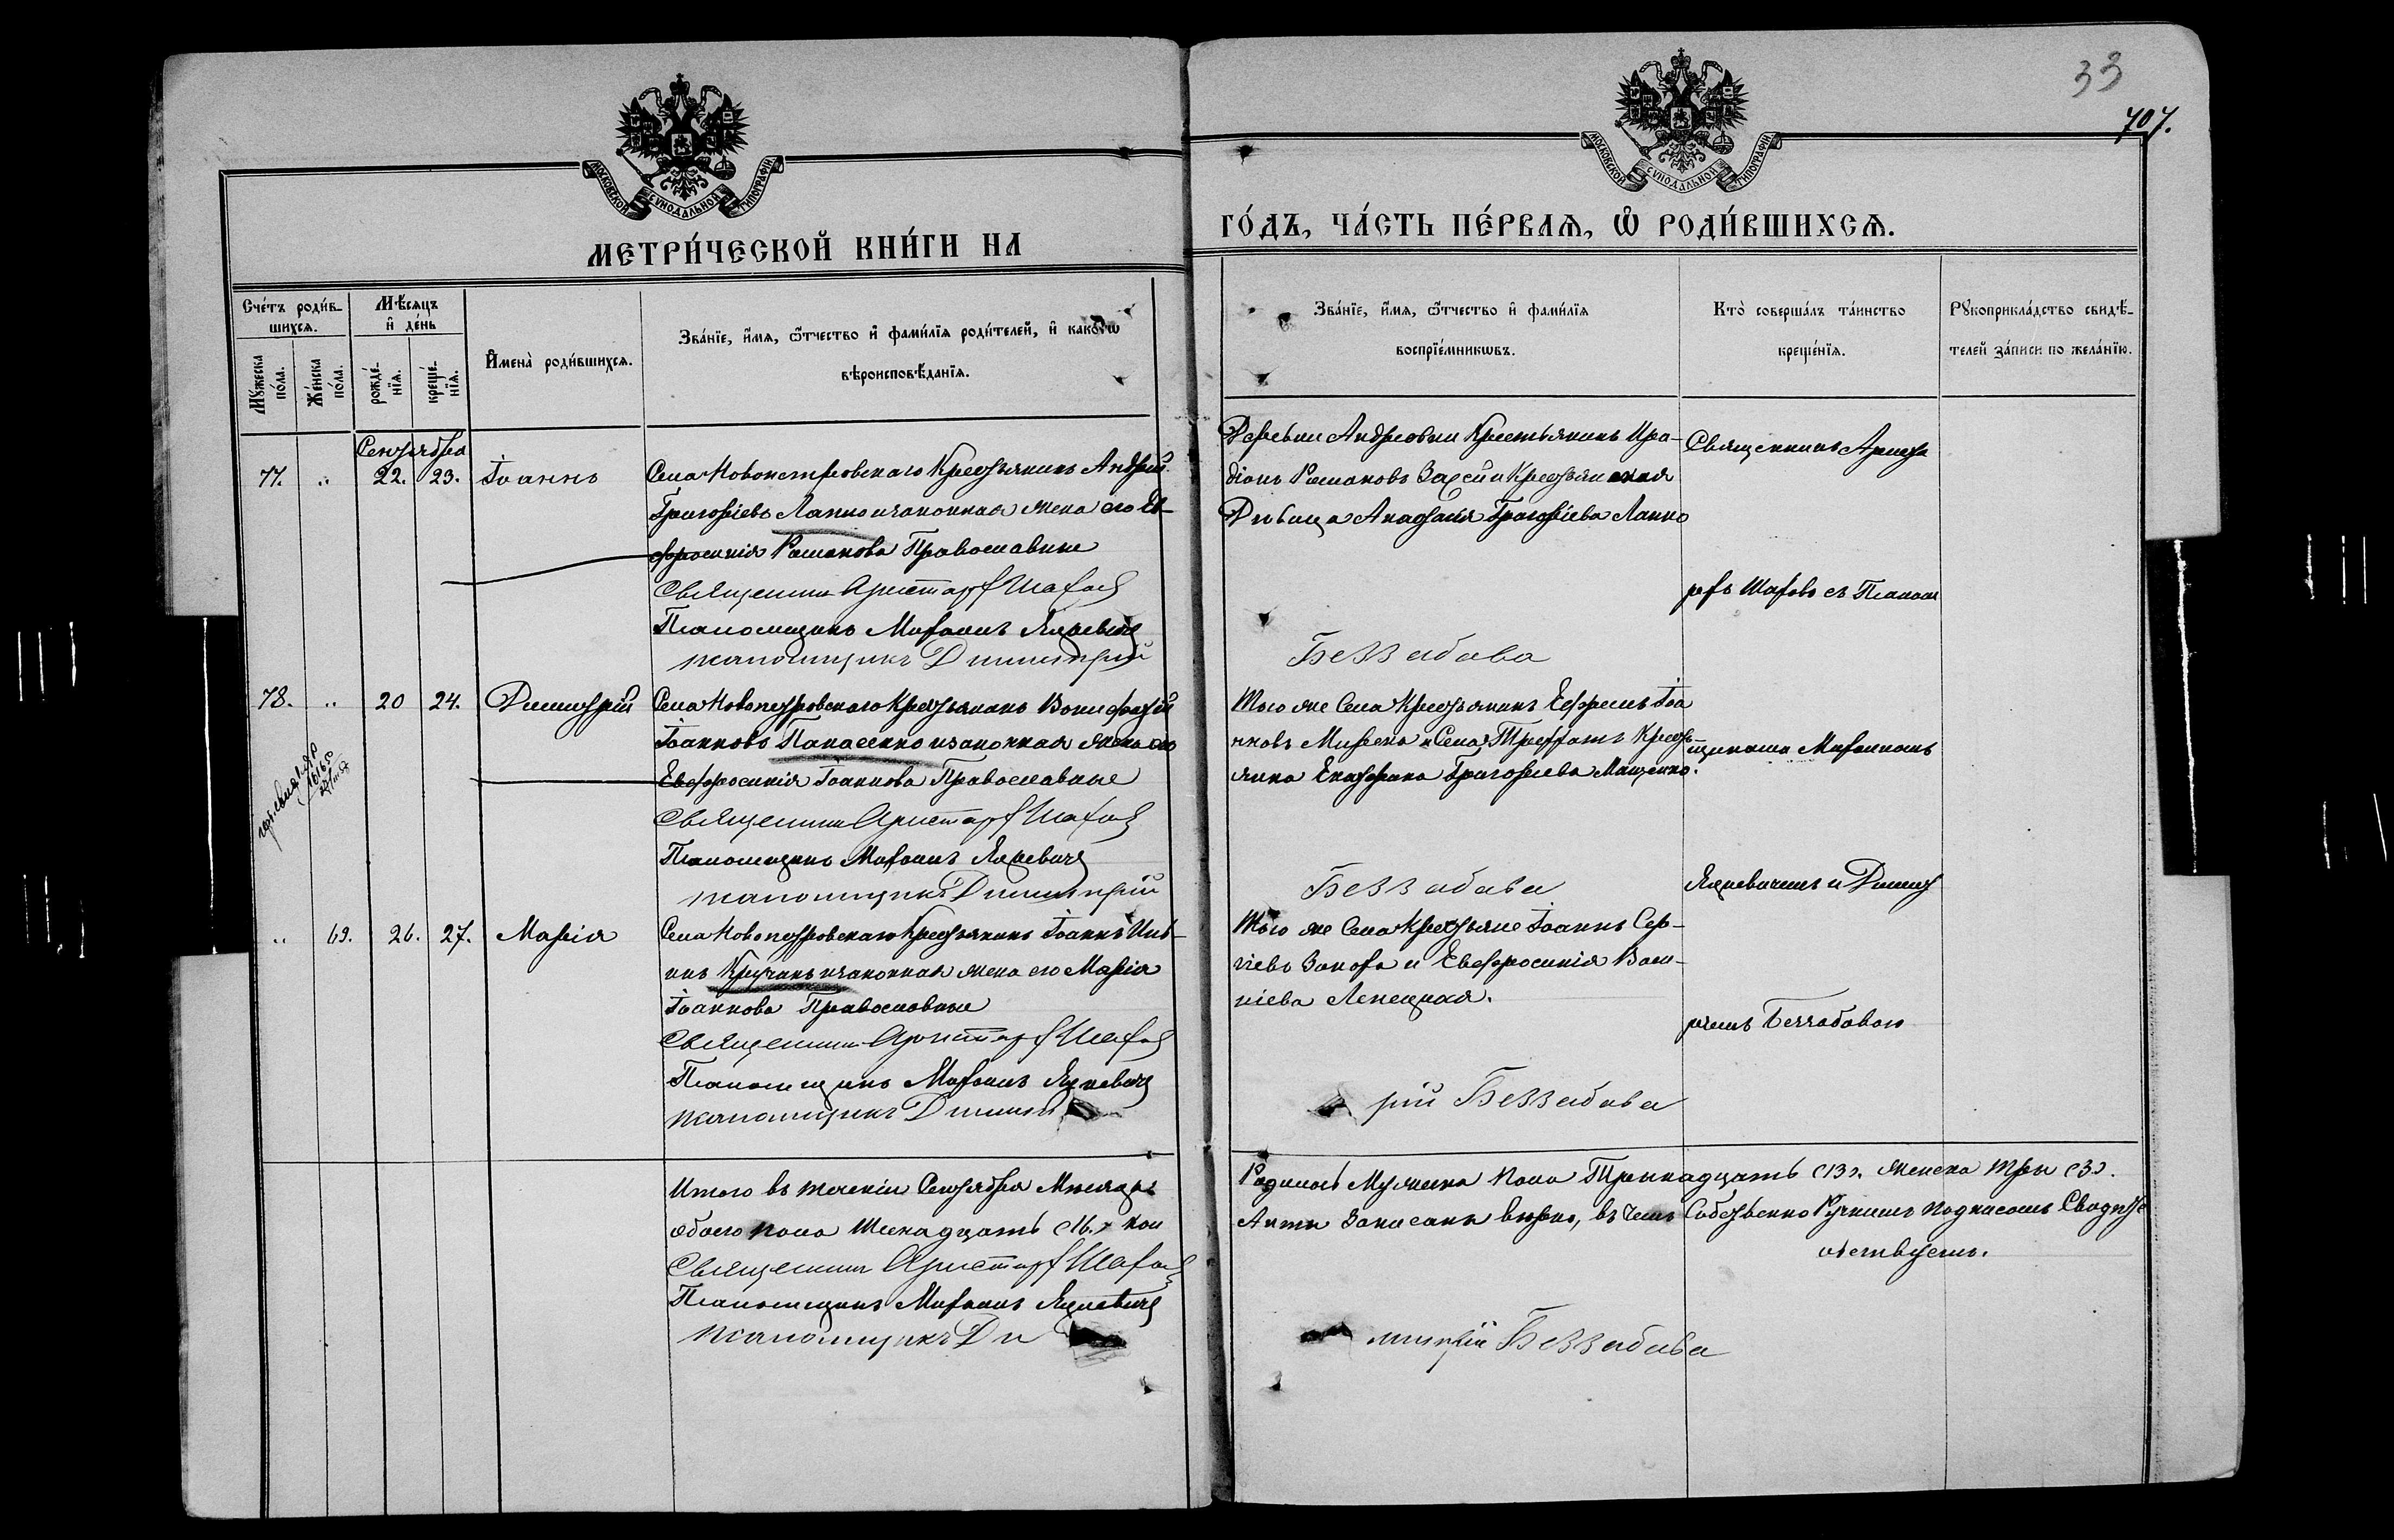 33
707.
МОСКОВСКОЙ СУНОДАЛЬНОЙ ТИПОГРАФІИ
МОСКОВСКОЙ СУНОДАЛЬНОЙ ТИПОГРАФІИ
МЕТРИ́ЧЕСКОЙ КНИ́ГИ НА
ГО́ДЪ, ЧА́СТЬ ПЕ́РВАѦ, Ѡ҆ РОДИ́ВШИХСѦ.
Сче́тъ роди́в-
шихсѧ.
Мꙋжеска по́ла.
Же́нска по́ла.
Мѣ́сѧцъ
и҆ де́нь
рожде́нїѧ.
креще́нїѧ.
И҆мена̀ роди́вшихсѧ.
Зва́нїе, и҆́мѧ, ѻ҆́тчество и҆ фами́лїѧ роди́телей, и҆ како́гѡ
вѣроисповѣ́данїѧ.
Зва́нїе, и҆́мѧ, ѻ҆́тчество и҆ фами́лїѧ
воспрїе́мникѡвъ.
Кто̀ соверша́лъ та́инство
креще́нїѧ.
Рꙋкоприкла́дство свидѣ́-
телей за́писи по жела́нїю.
Сентября
77. „ 22. 23. Іоаннъ
Села Новопетровскаго Крестьянинъ Андрей
Григоріевъ Лапко и законная жена его Ев-
фросинія Романова Православные
Священникъ Аристархъ Шаховъ
Псаломщикъ Михаилъ Яцкевичъ
псаломщикъ Димитрій
Деревни Андреевки Крестьянинъ Ира-
діонъ Романовъ и Крестьянская
Дѣвица Анастасія Григоріева Лапко
Беззабава
Священникъ Ариста
рхъ Шаховъ съ Псалом
78. „ 20 24. Димитрій
Села Новопетровскаго Крестьянинъ Вонифатій
Іоанновъ Панасенко и законная жена его
Евфросинія Іоаннова Православные
Священникъ Аристархъ Шаховъ
Псаломщикъ Михаилъ Яцкевичъ
псаломщикъ Димитрій
Того же Села Крестьянинъ Ефремъ Іоа
нновъ и Села Крестья
янка Екатерина Григоріева Мащенко.
Беззабава
щикомъ Михаиломъ
Яцкевичемъ и Димит
„ 69. 26. 27. Марія
Села Новопетровскаго Крестьянинъ Іоаннъ
и законная жена его Марія
Іоаннова Православные
Священникъ Аристархъ Шаховъ
Псаломщикъ Михаилъ Яцкевичъ
псаломщикъ Димит
Того же Села Крестьяне Іоаннъ Сер-
гіевъ и Евфросинія Васи-
ліева
рій Беззабава
ріемъ Беззабавою
Итого въ теченіи Сентября Мѣсяца
обоего пола Шеснадцать (16.)
Священникъ Аристархъ Шаховъ
Псаломщикъ Михаилъ Яцкевичъ
псаломщикъ Ди
Родилось Мужеска пола Тринадцать (13). женска три (3).
Акты Записаны вѣрно, въ чемъ Собственно Ручнымъ подписомъ Свидѣте
льствуемъ.
митрій Беззабава